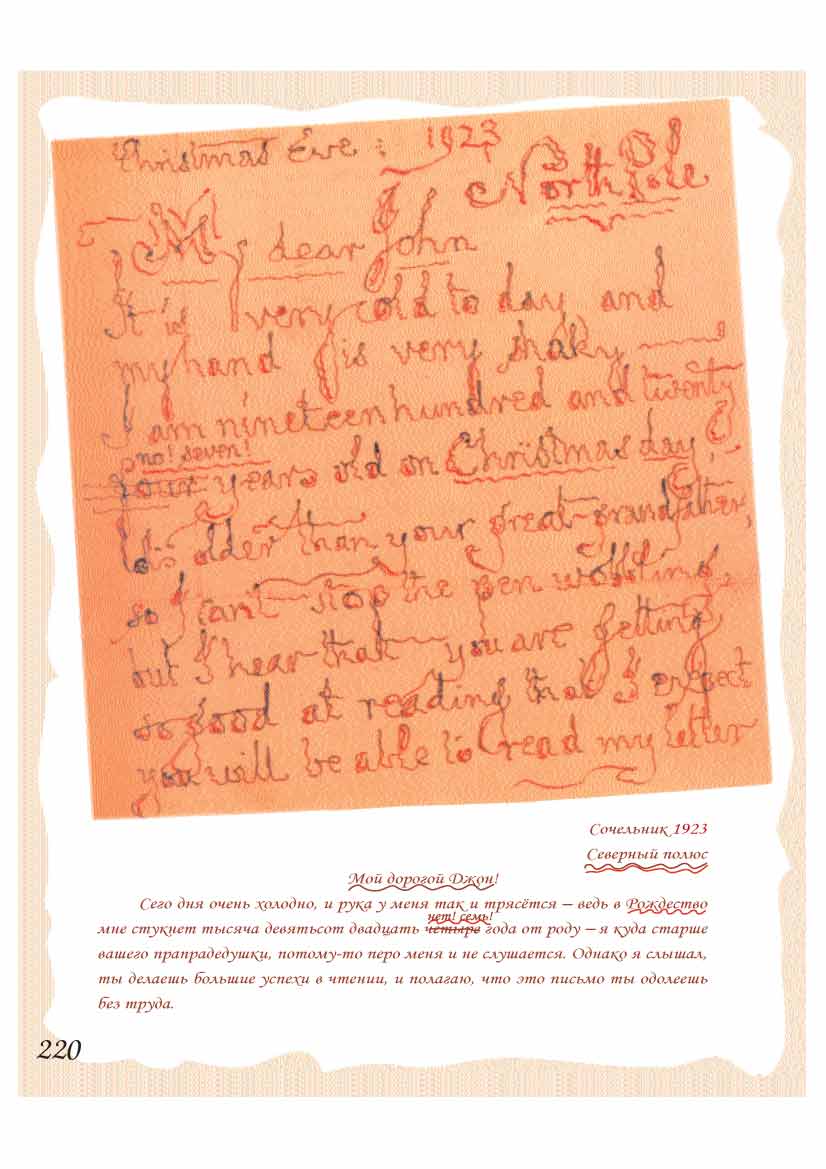 Christmas Eve : 1923
North Pole
My dear John
It is very cold to day and
my hand is very shaky
I am nineteen hundred and twenty
no! seven!
four years old on Christmas day,
I is older than your great-grandfather,
so I cant stop the pen wobbling
but I hear that you are getting
so good at reading that I expect
you will be able to read my letter
Сочельник 1923
Северный полюс
Мой дорогой Джон!
Сего дня очень холодно, и рука у меня так и трясётся – ведь в Рождество
нет! семь!
мне стукнет тысяча девятьсот двадцать четыре года от роду – я куда старше
вашего прапрадедушки, потому-то перо меня и не слушается. Однако я слышал,
ты делаешь большие успехи в чтении, и полагаю, что это письмо ты одолеешь
без труда.
220